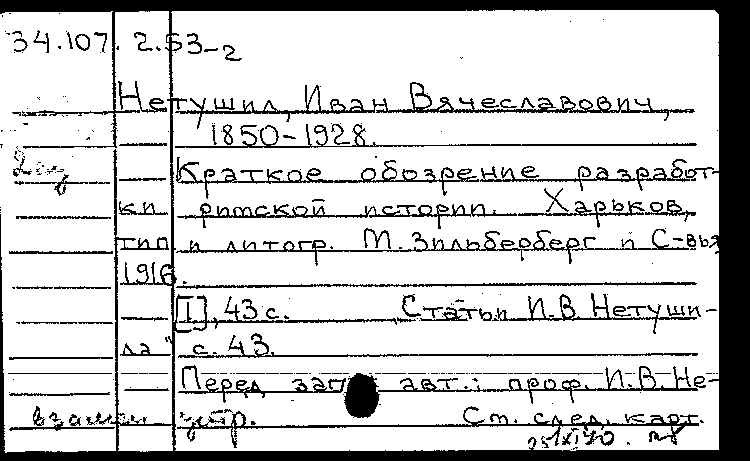 34.107. 2.53-2
Нетушил, Иван Вячеславович,
1850-1928.
2 экз
Краткое обозрение разработ-
ки римской истории. Харьков,
тип и литогр. М. Зильберберг и С-вья
1916.
[I], 43 с. „Статьи И.В. Нетуши-
ла" с. 43.
Перед заг авт.: проф. И.В. Не-
взамен устр. См. след. карт.